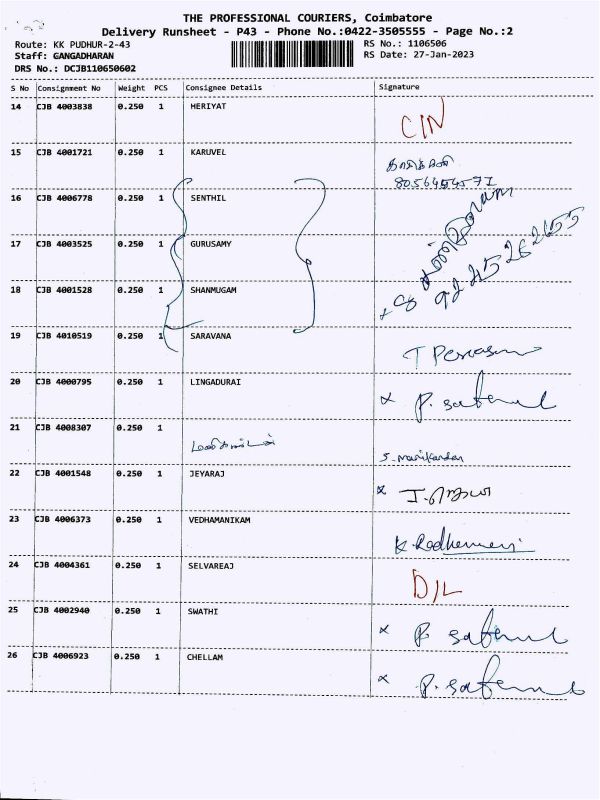 THE PROFESSIONAL COURIERS, Coimbatore
Delivery Runsheet - P43 - Phone No.:0422-3505555 - Page No.:2
Route: KK PUDHUR-2-43 RS No.: 1106506
Staff: GANGADHARAN RS Date: 27-Jan-2023
DRS No.: DCJB110650602
S No Consignment No Weight PCS Consignee Details Signature
14 CJB 4003838 0.250 1 HERIYAT
CIN
15 CJB 4001721 0.250 1 KARUVEL
16 CJB 4006778 0.250 1 SENTHIL
17 CJB 4003525 0.250 1 GURUSAMY
9245262655
18 CJB 4001528 0.250 1 SHANMUGAM
19 CJB 4010519 0.250 1 SARAVANA
20 CJB 4000795 0.250 1 LINGADURAI
21 CJB 4008307 0.250 1
மணிகண்டன் S. Manikandan
22 CJB 4001548 0.250 1 JEYARAJ
23 CJB 4006373 0.250 1 VEDHAMANIKAM
24 CJB 4004361 0.250 1 SELVAREAJ
D/L
25 CJB 4002940 0.250 1 SWATHI
26 CJB 4006923 0.250 1 CHELLAM